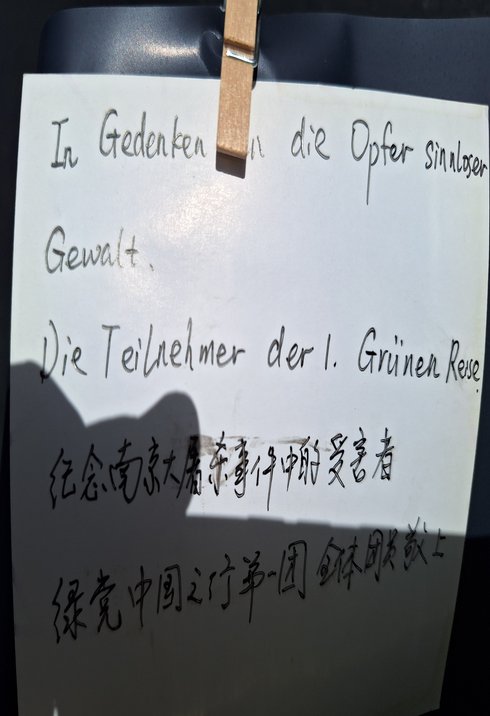 In Gedenken an die Opfer sinnloser
Gewalt.
Die Teilnehmer der 1. Grünen Reise
纪念南京大屠杀事件中的受害者
绿党中国之行第一团 全体团员敬上